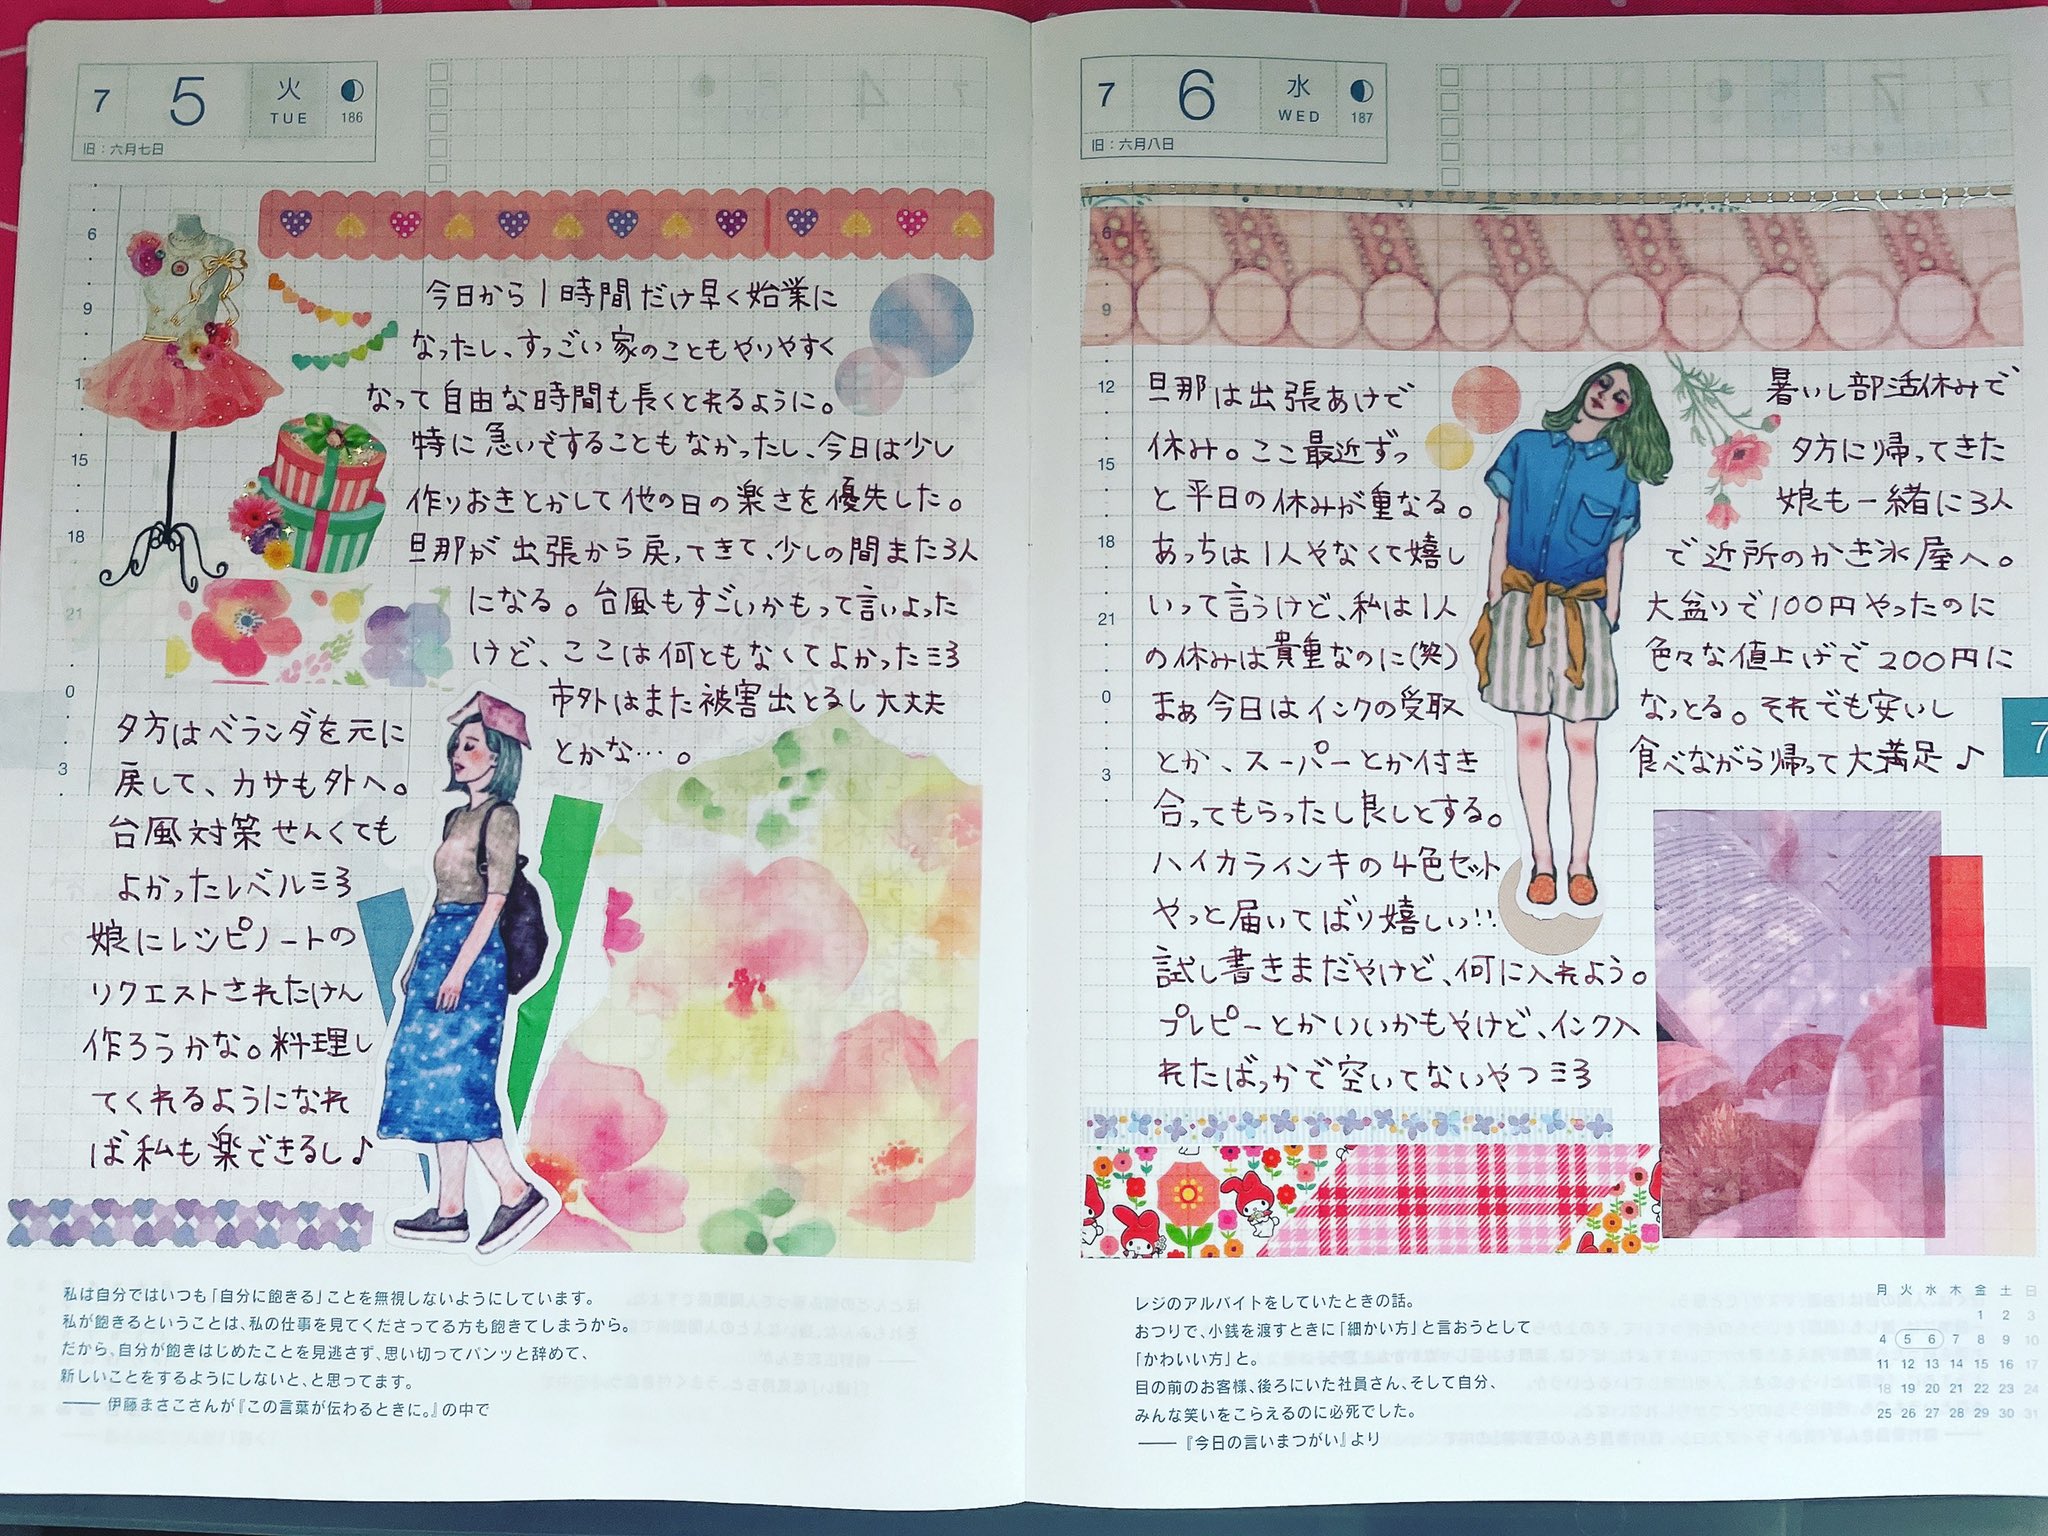 7 5 火 TUE 186
旧：六月七日
6
9
12
15
18
21
0
3
今日から1時間だけ早く始業に
なったし、すっごい家のこともやりやすく
なって自由な時間も長くとれるように。
特に急いですることもなかったし、今日は少し
作りおきとかして他の日の楽さを優先した。
旦那が出張から戻ってきて、少しの間また3人
になる。台風もすごいかもって言いよった
けど、ここは何ともなくてよかったミ3
市外はまた被害出とるし大丈夫
とかな…。
夕方はベランダを元に
戻して、カサも外へ。
台風対策せんくても
よかったレベルミ3
娘にレシピノートの
リクエストされたけん
作ろうかな。料理し
てくれるようになれ
ば私も楽できるし♪
私は自分ではいつも「自分に飽きる」ことを無視しないようにしています。
私が飽きるということは、私の仕事を見てくださってる方も飽きてしまうから。
だから、自分が飽きはじめたことを見逃さず、思い切ってパンッと辞めて、
新しいことをするようにしないと、と思ってます。
—— 伊藤まさこさんが『この言葉が伝わるときに。』の中で
7 6 水 WED 187
旧：六月八日
6
9
12
15
18
21
0
3
旦那は出張あけで
休み。ここ最近ずっ
と平日の休みが重なる。
あっちは1人やなくて嬉し
いって言うけど、私は1人
の休みは貴重なのに(笑)
まぁ今日はインクの受取
とか、スーパーとか付き
合ってもらったし良しとする。
ハイカラインキの4色セット
やっと届いてばり嬉しいっ!!
試し書きまだやけど、何に入れよう。
プレピーとかいいかもやけど、インク入
れたばっかで空いてないやつミ3
暑いし部活休みで
夕方に帰ってきた
娘も一緒に3人
で近所のかき氷屋へ。
大盆りで100円やったのに
色々な値上げで200円に
なっとる。それでも安いし
食べながら帰って大満足♪
7
レジのアルバイトをしていたときの話。
おつりで、小銭を渡すときに「細かい方」と言おうとして
「かわいい方」と。
目の前のお客様、後ろにいた社員さん、そして自分、
みんな笑いをこらえるのに必死でした。
—— 『今日の言いまつがい』より
月 火 水 木 金 土 日
1 2 3
4 5 6 7 8 9 10
11 12 13 14 15 16 17
18 19 20 21 22 23 24
25 26 27 28 29 30 31